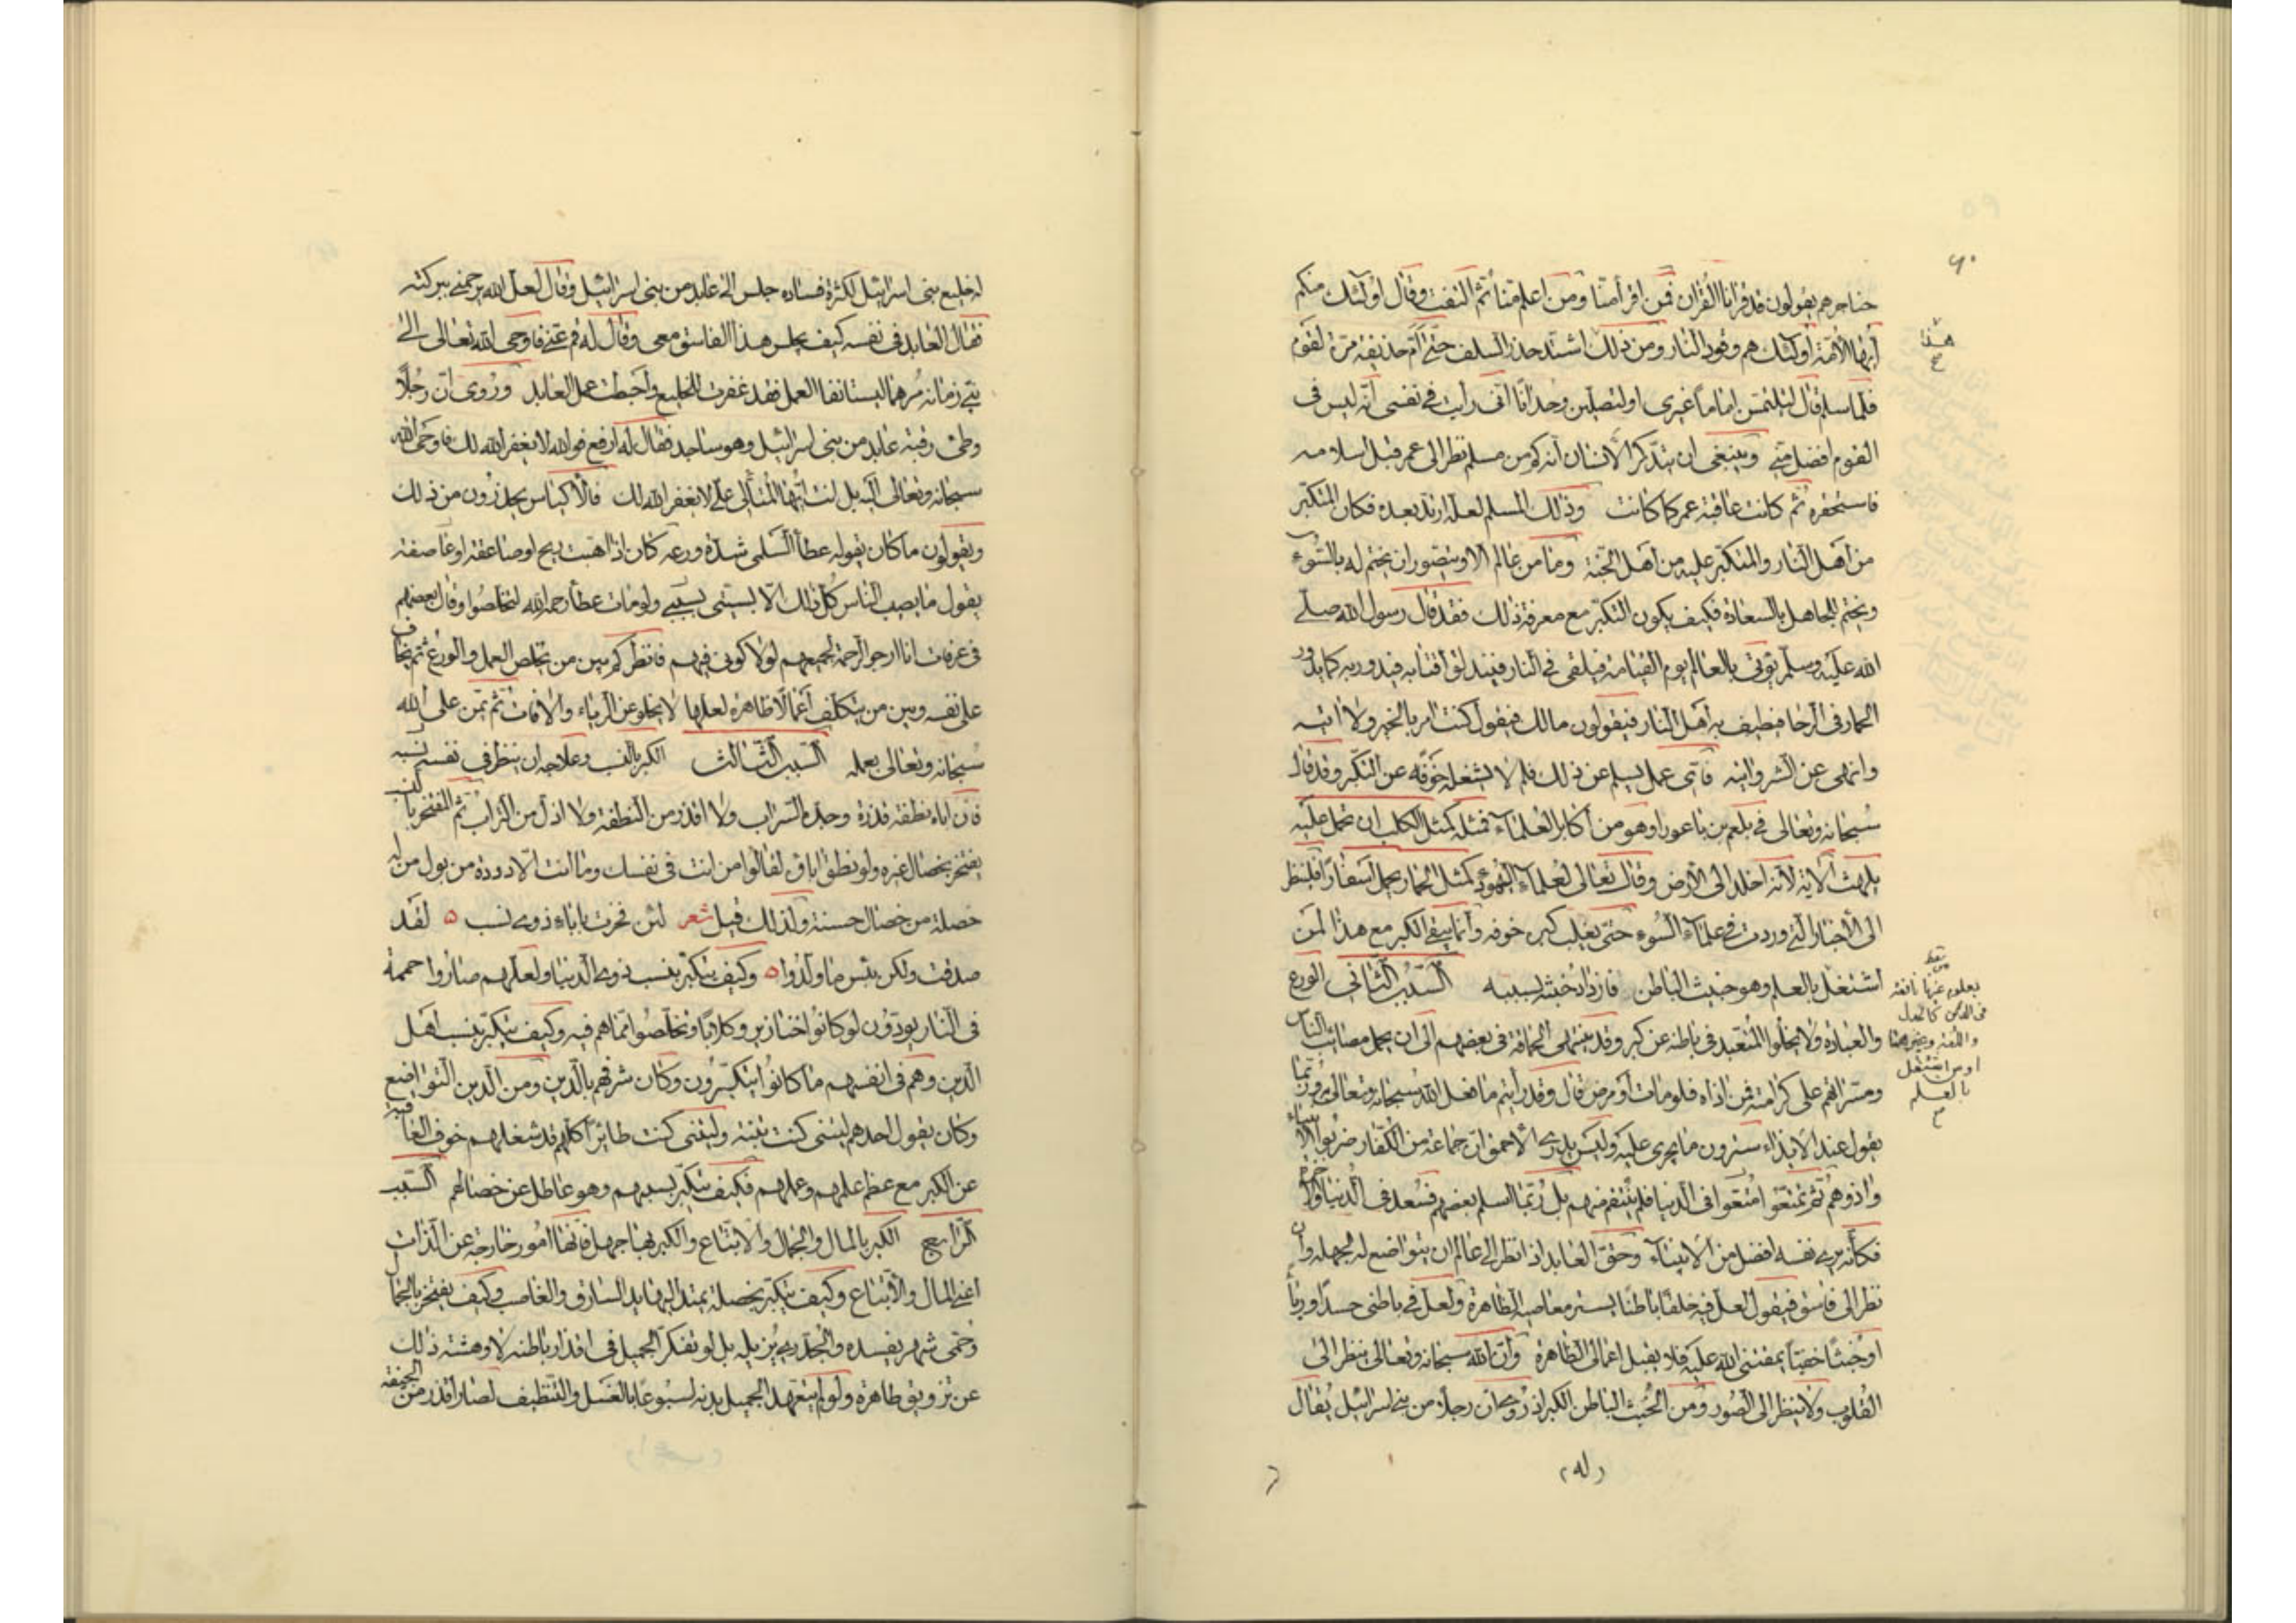 ٦٠
حناجرهم يقولون قد قرانا القران فمن اقرأ منا ومن اعلم منا ثم التفت وقال اولئك منكم
أيها الأمة اولئك هم وقود النار ومن ذلك اشتد حذر السلف حتى أم حذيفة مرة لقوم
فلما سلم قال لتلتمسن اماما غيري او لتصلين وحدانا اني رأيت في نفسي انه ليس في
القوم افضل مني وينبغي ان يتذكر الانسان انه كم من مسلم نظر الى عمر قبل اسلامه
فاستحقره ثم كانت عاقبة عمر كما كانت وذلك المسلم لعله ارتد بعده فكان المتكبر
من اهل النار والمتكبر عليه من اهل الجنة وما من عالم الا ويتصور ان يختم له بالسوء
ويختم للجاهل بالسعادة فكيف يكون التكبر مع معرفة ذلك فقد قال رسول الله صلى
الله عليه وسلم يؤتى بالعالم يوم القيامة فيلقى في النار فتندلق أقتابه فيدور به كما يدور
الحمار في الرحا فيطيف به اهل النار فيقولون مالك فيقول كنت امر بالخير ولا اتيه
وانهى عن الشر واتيه فأي عمل يسلم عن ذلك فلم لا يشغله خوفه عن التكبر وقد قال
سبحانه وتعالى في بلعم بن باعورا وهو من أكابر العلماء فمثله كمثل الكلب ان تحمل عليه
يلهث الاية لانه اخلد الى الأرض وقال تعالى لعلماء اليهود كمثل الحمار يحمل اسفارا فلينظر
الى الأخبار التي وردت في علماء السوء حتى يغلب كبره خوفه وانما يبقى الكبر مع هذا لمن
اشتغل بالعلم وهو خبيث الباطن فازداد خبثه بسببه السبب الثاني الورع
والعبادة ولا يخلوا المتعبد في باطنه عن كبر وقد ينتهي الحماقة في بعضهم الى ان يحمل مصائب الناس
ومسراتهم على كرامته فمن اذاه فلو مات أو مرض قال وقد رأيتم ما فعل الله سبحانه وتعالى به وربما
يقول عند الايذاء سترون ما يجرى عليه وليس يدري الاحمق ان جماعة من الكفار ضربوا الأنبياء
واذوهم ثم تمتعوا في الدنيا فلم ينتقم منهم بل ربما اسلم بعضهم فسعد في الدنيا والاخرة
فكأنه يرى نفسه افضل من الانبياء وحق العابد اذا نظر الى عالم ان يتواضع له لجهله وان
نظر الى فاسق فيقول لعل فيه خلقا باطنا يستر معاصيه الظاهرة ولعل في باطني حسدا ورياء
او خبثا خفيا يمقتني الله عليه فلا يقبل اعمالي الظاهرة وان الله سبحانه وتعالى ينظر الى
القلوب ولا ينظر الى الصور ومن الخبث الباطن الكبر اذ روي ان رجلا من بني اسرائيل يقال
له
هذا
بعلوم غيرها نافعة
في الدين كالجدل
واللغة وغيرهما
او من اشتغل
بالعلم
له خليع بني اسرائيل لكثرة فساده جلس الى عابد من بني اسرائيل وقال لعل الله يرحمني ببركته
فقال العابد في نفسه كيف يجلس هذا الفاسق معي وقال له قم عني فاوحى الله تعالى الى
نبي زمانه مرهما ليستانفا العمل فقد غفرت للخليع وأحبطت عمل العابد وروي ان رجلا
وطئ رقبة عابد من بني اسرائيل وهو ساجد فقال له ارفع فوالله لا يغفر الله لك فاوحى الله
سبحانه وتعالى اليه بل انت ايها المتألي علي لا يغفر الله لك فالاكياس يحذرون من ذلك
ويقولون ما كان يقوله عطاء السلمي شدة ورعه كان اذا هبت ريح او صاعقة او عاصفة
يقول ما يصيب الناس كل ذلك الا بسببي ولو مات عطاء رحمه الله لتخلصوا وقال بعضهم
في عرفات انا ارجو الرحمة لجميعهم لولا كوني فيهم فانظر كم بين من يخلص العمل والورع ثم يخاف
على نفسه وبين من يتكلف أعمالا ظاهرة لعلها لا يخلو عن الرياء والافات ثم يمن على الله
سبحانه وتعالى بعمله السبب الثالث الكبر بالنسب وعلاجه ان ينظر في نفسه نسبه
فان اباه نطفة قذرة وجده التراب ولا اقذر من النطفة ولا اذل من التراب ثم المفتخر بالنسب
يفتخر بخصال غيره ولو نطق اباؤه لقالوا من انت في نفسك وما انت الا دودة من بول من له
خصلة من خصال حسنة ولذلك قيل شعر لئن فخرت باباء ذوي نسب ٥ لقد
صدقت ولكن بئس ما ولدوا ٥ وكيف يتكبر بنسب ذوي الدنيا ولعلهم صاروا حممة
في النار يودون لو كانوا خنازير وكلابا وتخلصوا مما هم فيه وكيف يتكبر بنسب اهل
الدين وهم في انفسهم ما كانوا يتكبرون وكان شرفهم بالدين ومن الدين التواضع
وكان يقول احدهم ليتني كنت تبنة وليتني كنت طائرا كلهم قد شغلهم خوف العاقبة
عن الكبر مع عظم علمهم وعملهم فكيف يتكبر بنسبهم وهو عاطل عن خصالهم السبب
الرابع الكبر بالمال والجمال والاتباع والكبر بها جهل فانها أمور خارجة عن الذات
اعني المال والأتباع وكيف يتكبر بخصلة يمتد اليها يد السارق والغاصب وكيف يفتخر بالجمال
وحمى شهر يفسده والجدري يزيله بل لو تفكر الجميل في اقذار باطنه لادهشته ذلك
عن تزويق ظاهره ولو لم يتعهد الجميل بدنه اسبوعا بالغسل والتنظيف لصار اقذر من الجيفة